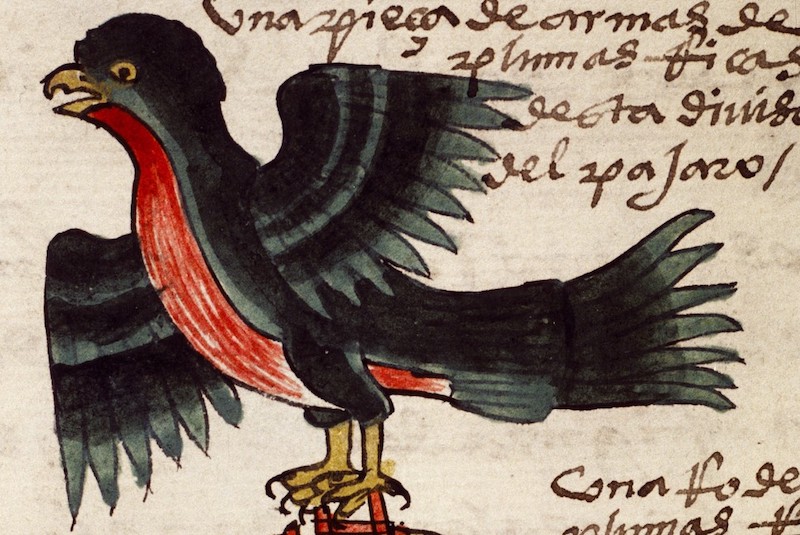 Una pieça de armas de
plumas Ricas
desta divisa
del pajaro /
Con a Ro de
plumas R